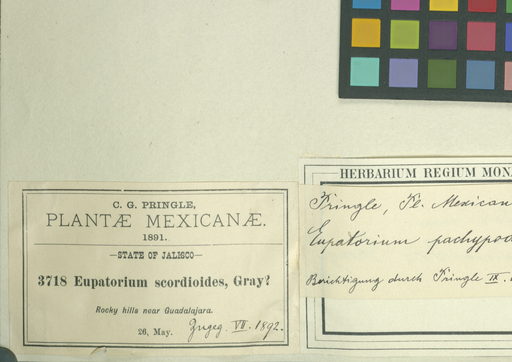 C. G. PRINGLE,
PLANTÆ MEXICANÆ.
1891.
—STATE OF JALISCO—
3718 Eupatorium scordioides, Gray?
Rocky hills near Guadalajara.
26, May. Zugeg. VII. 1892.
HERBARIUM REGIUM MONA
Pringle, Pl. Mexican
Eupatorium pachypod
Berichtigung durch Pringle IX.